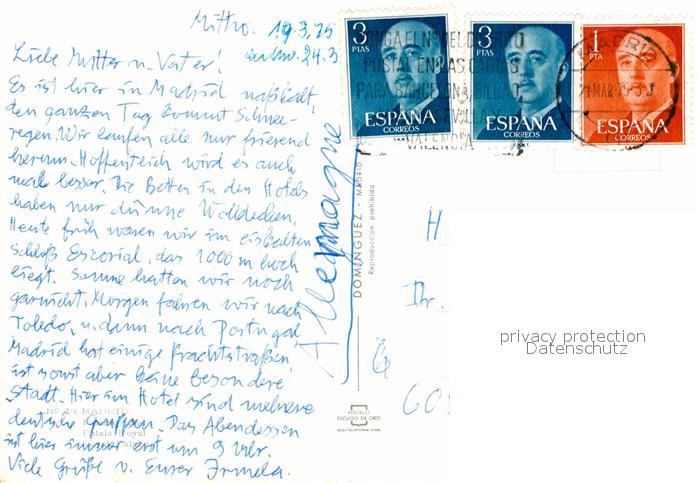 Mittwo. 19.3.75
ankno. 24.3
Liebe Mutter u. Vater!
Es ist hier in Madrid naßkalt,
den ganzen Tag kommt Schnee-
regen. Wir laufen alle nur frierend
herum. Hoffentlich wird es auch
mal besser. Die Betten in den Hotels
haben nur dünne Wolldecken.
Heute früh waren wir im eiskalten
Schloß Escorial, das 1000 m hoch
liegt. Sonne hatten wir noch
garnicht. Morgen fahren wir nach
Toledo, u. dann nach Portugal
Madrid hat einige Prachtstraßen,
ist sonst aber keine besondere
Stadt. Hier im Hotel sind mehrere
deutsche Gruppen. Das Abendessen
ist hier immer erst um 9 Uhr.
Viele Grüße v. Eurer Irmela.
Nº 19 MADRID
Palacio Royal
Allemagne
DOMINGUEZ - MADRID
Reproducción prohibida
POSTALES
ESCUDO DE ORO
3
PTAS
ESPAÑA
CORREOS
3
PTAS
ESPAÑA
CORREOS
1
PTA
ESPAÑA
CORREOS
PONGA EL Nº DEL DISTRITO
POSTAL EN LAS CARTAS
PARA BARCELONA, BILBAO,
SEVILLA Y
VALENCIA
MADRID
21 MAR 75
H
Fr.
6
60
privacy protection
Datenschutz